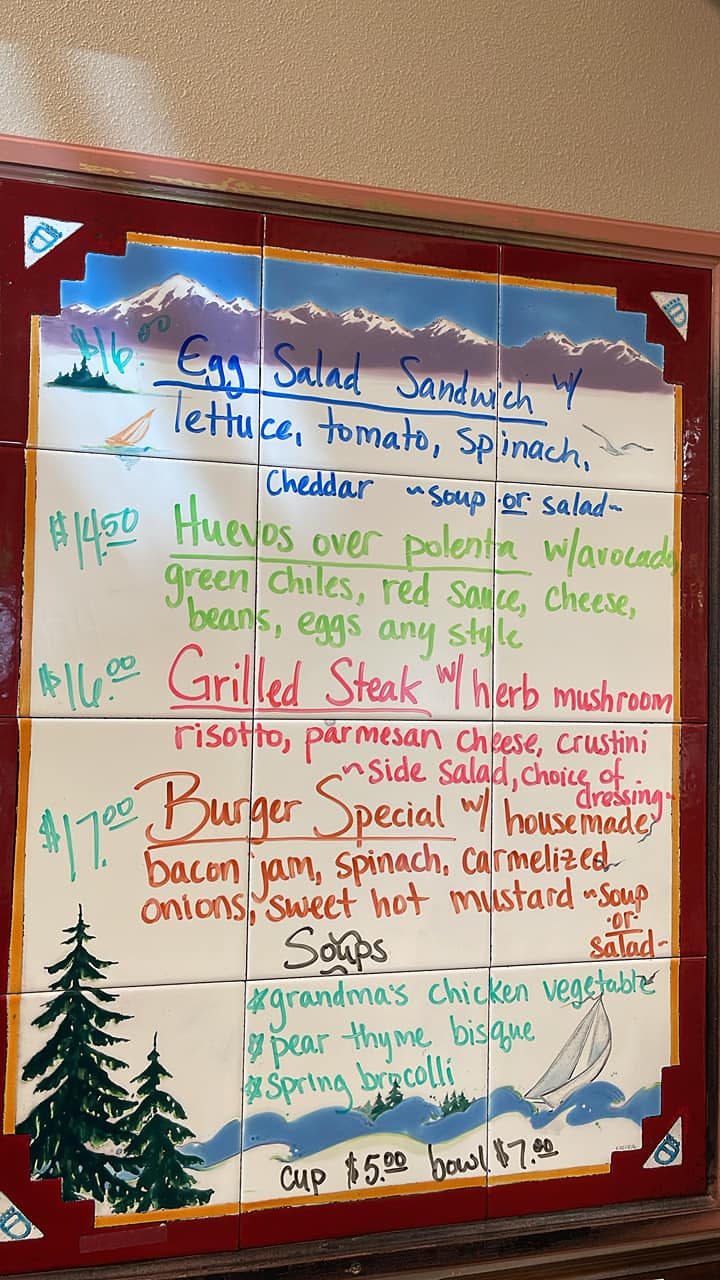 $16.00 Egg Salad Sandwich w/
lettuce, tomato, spinach,
Cheddar ~soup or salad~
$14.50 Huevos over polenta w/avocado,
green chiles, red sauce, cheese,
beans, eggs any style
$16.00 Grilled Steak w/ herb mushroom
risotto, parmesan cheese, crustini
~side salad, choice of
dressing~
$17.00 Burger Special w/ housemade
bacon jam, spinach, carmelized
onions, sweet hot mustard ~soup
·or·
salad~
Soups
*grandma's chicken vegetable
*pear thyme bisque
*spring brocolli
cup $5.00 bowl $7.00